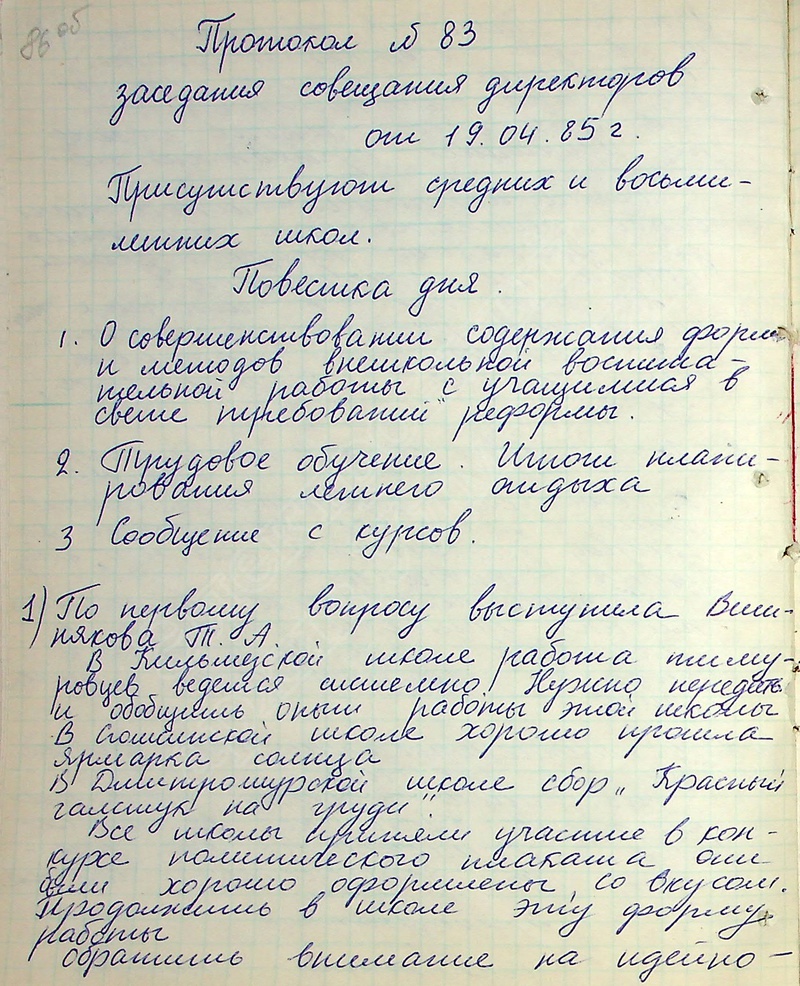 86 об
Протокол № 83
заседания совещания директоров
от 19.04.85 г.
Присутствуют средних и восьми-
летних школ.
Повестка дня.
1. О совершенствовании содержания форм
и методов внешкольной воспита-
тельной работы с учащимися в
свете требований реформы.
2. Трудовое обучение. Итоги плани-
рования летнего отдыха
3 Сообщение с курсов.
1) По первому вопросу выступила Виш-
някова Т. А.
В Кильмезской школе работа тиму-
ровцев ведется системно. Нужно передать
и обобщить опыт работы этой школы
В школе хорошо прошла
ярмарка солнца
В Дмитрошурской школе сбор „Красный
галстук на груди".
Все школы приняли участие в кон-
курсе политического плаката они
были хорошо оформлены, со вкусом.
Продолжить в школе эту форму
работы
обратить внимание на идейно-